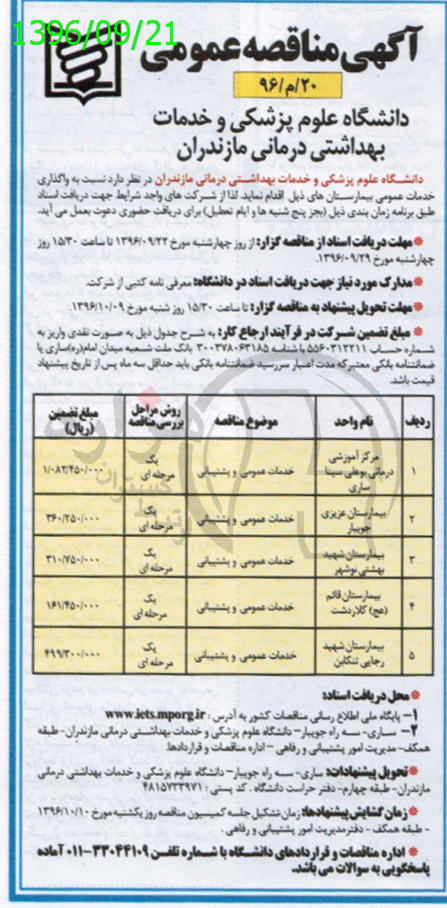 1396/09/21
آگهی مناقصه عمومی
۲۰/م/۹۶
دانشگاه علوم پزشکی و خدمات
بهداشتی درمانی مازندران
دانشگاه علوم پزشکی و خدمات بهداشتی درمانی مازندران در نظر دارد نسبت به واگذاری
خدمات عمومی بیمارستان های ذیل اقدام نماید. لذا از شرکت های واجد شرایط جهت دریافت اسناد
طبق برنامه زمان بندی ذیل (بجز پنج شنبه ها و ایام تعطیل) برای دریافت حضوری دعوت بعمل می آید.
* مهلت دریافت اسناد از مناقصه گزار: از روز چهارشنبه مورخ ۱۳۹۶/۰۹/۲۲ تا ساعت ۱۵/۳۰ روز
چهارشنبه مورخ ۱۳۹۶/۰۹/۲۹.
* مدارک مورد نیاز جهت دریافت اسناد در دانشگاه: معرفی نامه کتبی از شرکت.
* مهلت تحویل پیشنهاد به مناقصه گزار: تا ساعت ۱۵/۳۰ روز شنبه مورخ ۱۳۹۶/۱۰/۰۹.
* مبلغ تضمین شرکت در فرآیند ارجاع کار: به شرح جدول ذیل به صورت نقدی واریز به
شماره حساب ۵۵۶۰۳۱۲۲۱۱ با شناسه ۳۰۰۳۷۸۰۶۳۱۸۵ بانک ملت شعبه میدان امام(ره)ساری یا
ضمانتنامه بانکی معتبر که مدت اعتبار سررسید ضمانتنامه بانکی باید حداقل سه ماه پس از تاریخ پیشنهاد
قیمت باشد.
ردیف نام واحد موضوع مناقصه روش مراحل بررسی مناقصه مبلغ تضمین (ریال)
۱ مرکز آموزشی درمانی بوعلی سینا ساری خدمات عمومی و پشتیبانی یک مرحله ای ۱/۰۸۲/۴۵۰/۰۰۰
۲ بیمارستان عزیزی جویبار خدمات عمومی و پشتیبانی یک مرحله ای ۳۶۰/۲۵۰/۰۰۰
۳ بیمارستان شهید بهشتی نوشهر خدمات عمومی و پشتیبانی یک مرحله ای ۳۱۰/۷۵۰/۰۰۰
۴ بیمارستان قائم (عج) کلاردشت خدمات عمومی و پشتیبانی یک مرحله ای ۱۶۱/۴۵۰/۰۰۰
۵ بیمارستان شهید رجایی تنکابن خدمات عمومی و پشتیبانی یک مرحله ای ۴۹۹/۳۰۰/۰۰۰
* محل دریافت اسناد:
۱- پایگاه ملی اطلاع رسانی مناقصات کشور به آدرس : www.iets.mporg.ir
۲- ساری- سه راه جویبار- دانشگاه علوم پزشکی و خدمات بهداشتی درمانی مازندران- طبقه
همکف- مدیریت امور پشتیبانی و رفاهی - اداره مناقصات و قراردادها.
* تحویل پیشنهادات: ساری- سه راه جویبار- دانشگاه علوم پزشکی و خدمات بهداشتی درمانی
مازندران- طبقه چهارم- دفتر حراست دانشگاه . کد پستی : ۴۸۱۵۷۳۳۹۷۱
* زمان گشایش پیشنهادها: زمان تشکیل جلسه کمیسیون مناقصه روز یکشنبه مورخ ۱۳۹۶/۱۰/۱۰
- طبقه همکف - دفتر مدیریت امور پشتیبانی و رفاهی .
* اداره مناقصات و قراردادهای دانشگاه با شماره تلفن ۳۳۰۴۴۱۰۹-۰۱۱ آماده
پاسخگویی به سوالات می باشد.